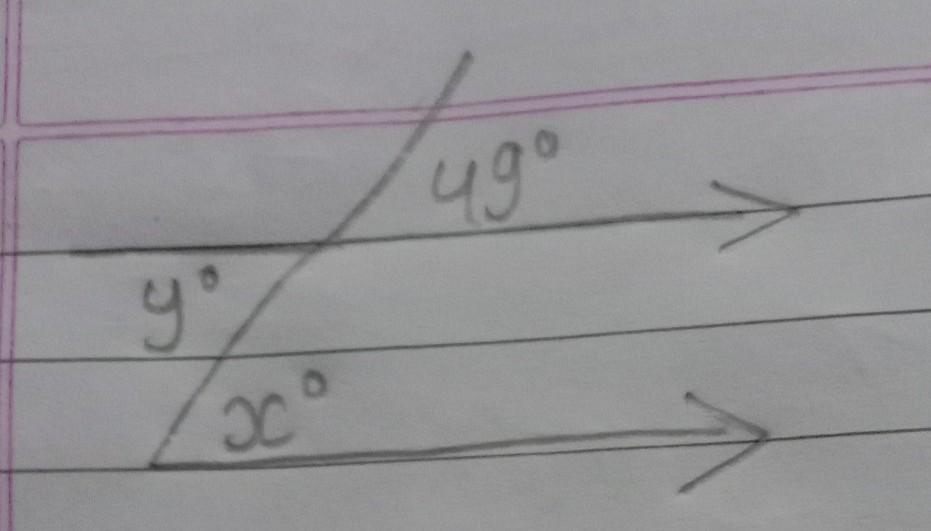 49°
y°
x°